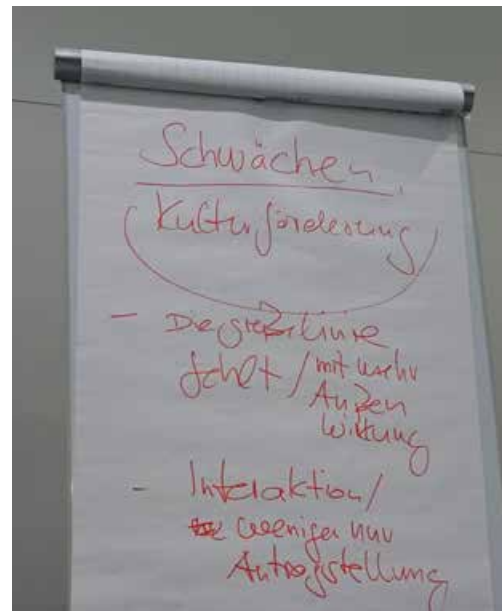 Schwächen
Kulturförderung
- Die große Linie
fehlt / mit mehr
Außen
wirkung
- Interaktion /
weniger nur
Antragstellung